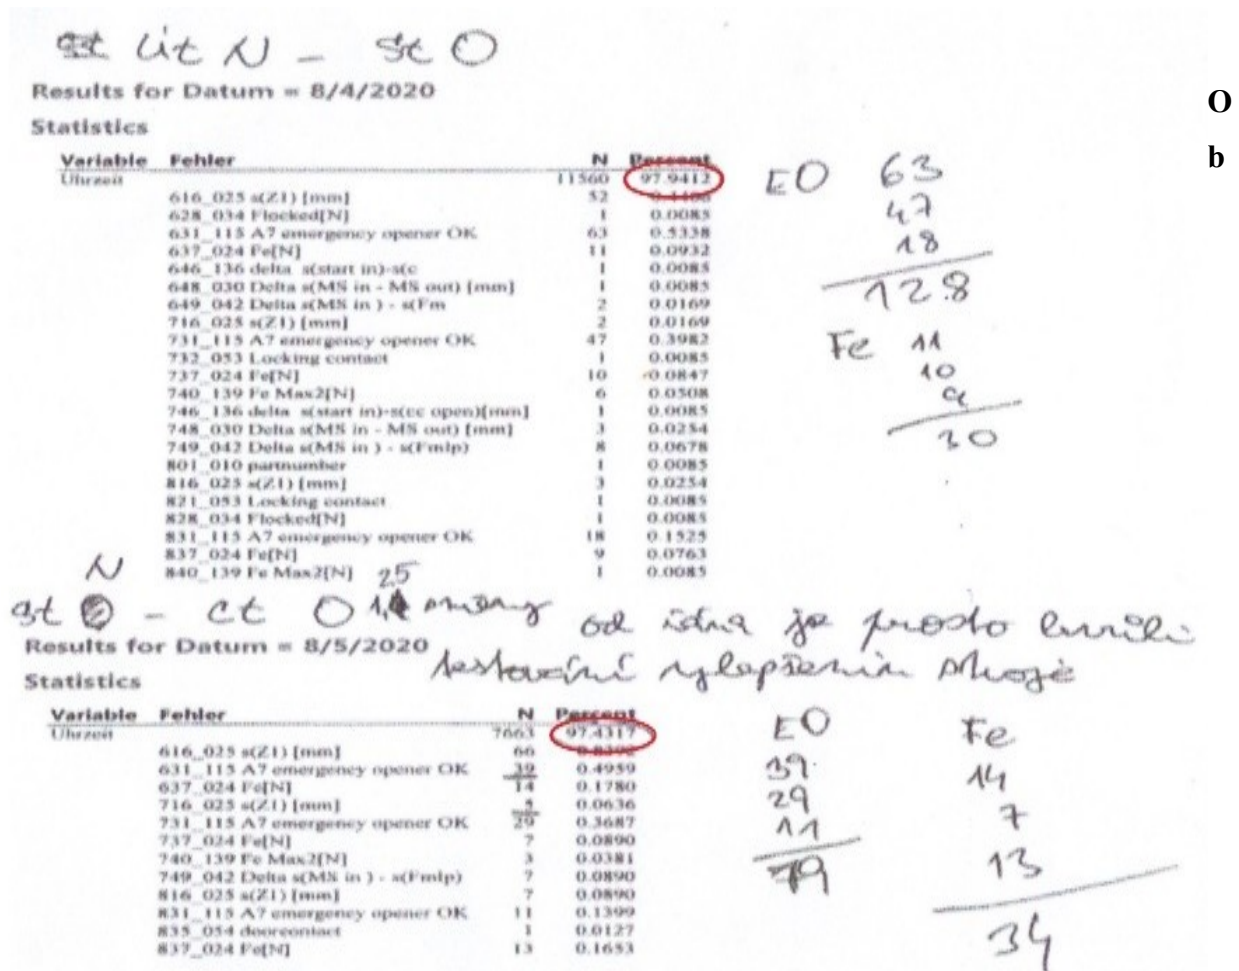 st lit N - st O
Results for Datum = 8/4/2020
O
Statistics
b
Variable Fehler N Percent
Uhrzeit 11560 97.9412
616_025 s(Z1) [mm] 52
628_034 Flocked[N] 1 0.0085
631_115 A7 emergency opener OK 63 0.5338
637_024 Fe[N] 11 0.0932
646_136 delta s(start in)-s(c 1 0.0085
648_030 Delta s(MS in - MS out) [mm] 1 0.0085
649_042 Delta s(MS in ) - s(Fm 2 0.0169
716_025 s(Z1) [mm] 2 0.0169
731_115 A7 emergency opener OK 47 0.3982
732_053 Locking contact 1 0.0085
737_024 Fe[N] 10 0.0847
740_139 Fe Max2[N] 6 0.0508
746_136 delta s(start in)-s(cc open)[mm] 1 0.0085
748_030 Delta s(MS in - MS out) [mm] 3 0.0254
749_042 Delta s(MS in ) - s(Fmlp) 8 0.0678
801_010 partnumber 1 0.0085
816_025 s(Z1) [mm] 3 0.0254
821_053 Locking contact 1 0.0085
828_034 Flocked[N] 1 0.0085
831_115 A7 emergency opener OK 18 0.1525
837_024 Fe[N] 9 0.0763
840_139 Fe Max2[N] 1 0.0085
EO 63
47
18
128
Fe 11
10
9
30
N 25
st - ct O směny od je prosto kvůli
testování vylepšením stroje
Results for Datum = 8/5/2020
Statistics
Variable Fehler N Percent
Uhrzeit 7663 97.4317
616_025 s(Z1) [mm] 66 0.8392
631_115 A7 emergency opener OK 39 0.4959
637_024 Fe[N] 14 0.1780
716_025 s(Z1) [mm] 5 0.0636
731_115 A7 emergency opener OK 29 0.3687
737_024 Fe[N] 7 0.0890
740_139 Fe Max2[N] 3 0.0381
749_042 Delta s(MS in ) - s(Fmlp) 7 0.0890
816_025 s(Z1) [mm] 7 0.0890
831_115 A7 emergency opener OK 11 0.1399
835_054 doorcontact 1 0.0127
837_024 Fe[N] 13 0.1653
EO
39
29
11
79
Fe
14
7
13
34